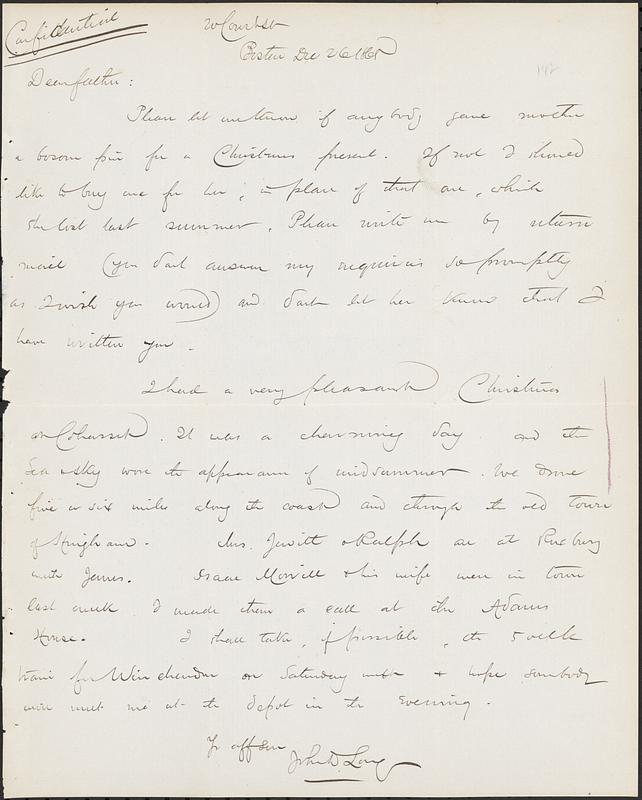 Confidential
20 Court St
Boston Dec 26 1865
142
Dear father:
Please let me know if anybody gave mother
a bosom pin for a Christmas present. If not I should
like to buy one for her, in place of that one, which
she lost last summer. Please write me by return
mail (you don't answer my inquiries so promptly
as I wish you would) and don't let her know that I
have written you.
I had a very pleasant Christmas
at Cohasset. It was a charming day and the
sea & sky wore the appearance of midsummer. We drove
five or six miles along the coast and through the old town
of Hingham. Mrs. Jewitt & Ralph are at Roxbury
with James. Isaac Morrill & his wife were in town
last week. I made them a call at the Adams
House. I shall take, if possible, the 5 o'clk
train for Winchendon on Saturday & hope somebody
will meet me at the depot in the evening.
Yr aff son
John D. Long